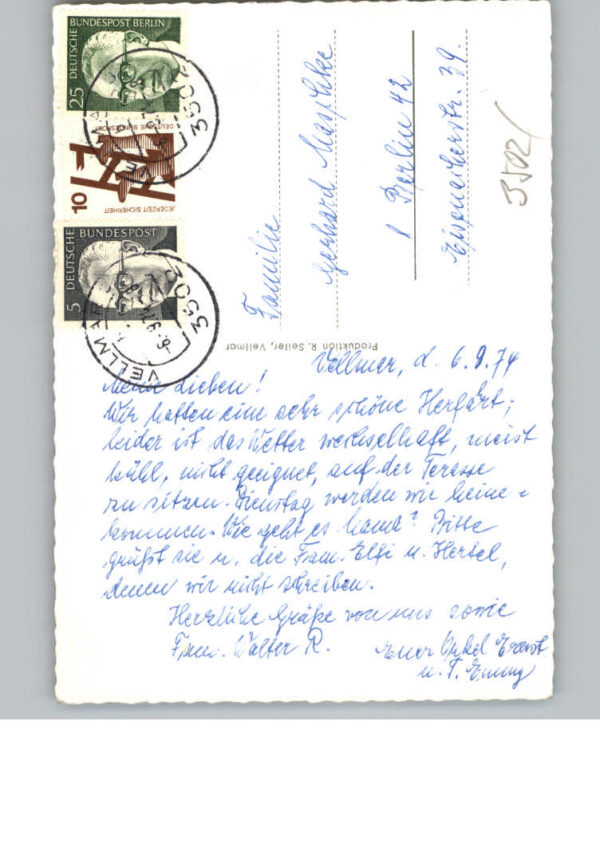 DEUTSCHE BUNDESPOST BERLIN
25
DEUTSCHE BUNDESPOST
JEDERZEIT SICHERHEIT
10
DEUTSCHE BUNDESPOST
5
3502
VELLMAR
3502
Familie
Gerhard Maschke
1 Berlin 42
Eisenacherstr. 39.
3502/
Produktion R. Seiler, Vellmar
Vellmar, d. 6.9.74
Meine Lieben!
Wir hatten eine sehr schöne Herfart;
leider ist das Wetter wechselhaft, meist
kühl, nicht geeignet, auf der Terasse
zu sitzen. Dienstag werden wir heim-
kommen. Wie geht es Mama? Bitte
grüßt sie u. die Fam. Elfi u. Hertel,
denen wir nicht schreiben.
Herzliche Grüße von uns sowie
Fam. Walter R.
Euer Onkel Ernst
u. T.